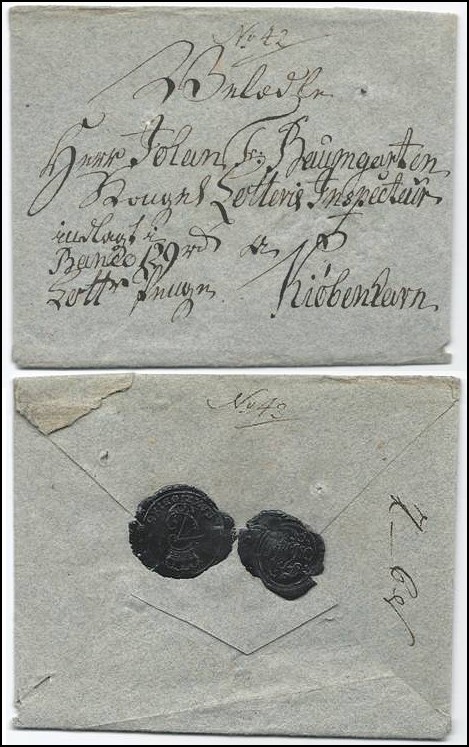 No 42
Velædle
Herr Johan Fr: Baumgarten
Kongel Lotterie Inspecteur
indlagt i
Banco 139 rd a p
Lott Penge Kiöbenhavn
No 43